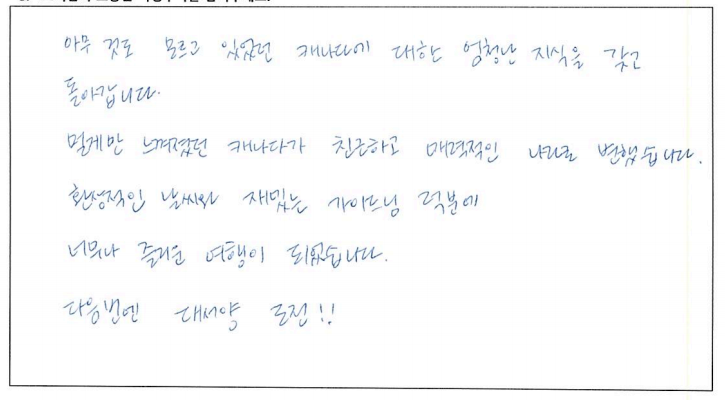 아무 것도 모르고 있었던 캐나다에 대한 엄청난 지식을 갖고
돌아갑니다.
멀게만 느껴졌던 캐나다가 친근하고 매력적인 나라로 변했습니다.
환상적인 날씨와 재밌는 가이드님 덕분에
너무나 즐거운 여행이 되었습니다.
다음번엔 대서양 도전!!